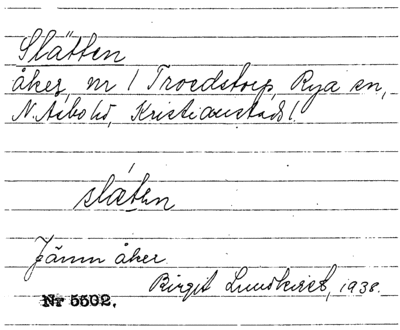 Slätten
åker, nr 1 Troedstorp, Rya sn,
N. Åsbo hd, Kristianstads l.
slæten
Jämn åker.
Birgit Lundkvist, 1938.
Nr 5502.